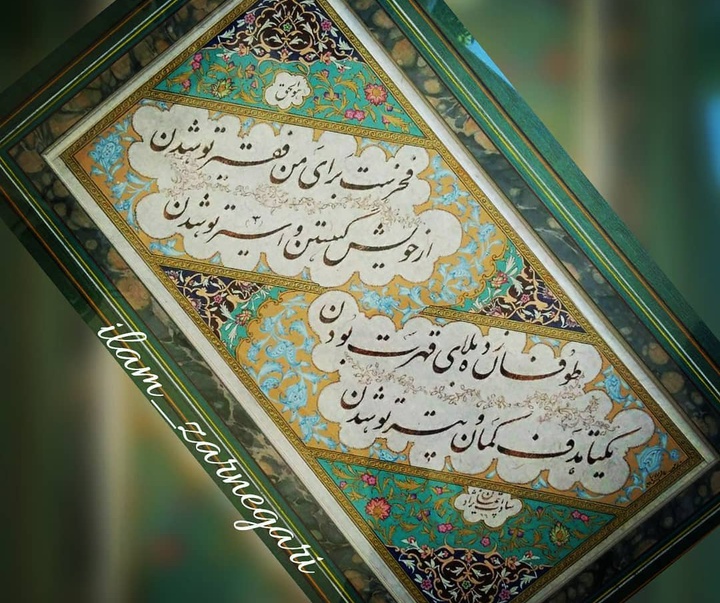 فخرست برای من فقیر تو شدن
از خویش گسستن و اسیر تو شدن
طوفان زده بلای قهرت بودن
یکتا هدف کمان و تیر تو شدن
ilam_zarnegari